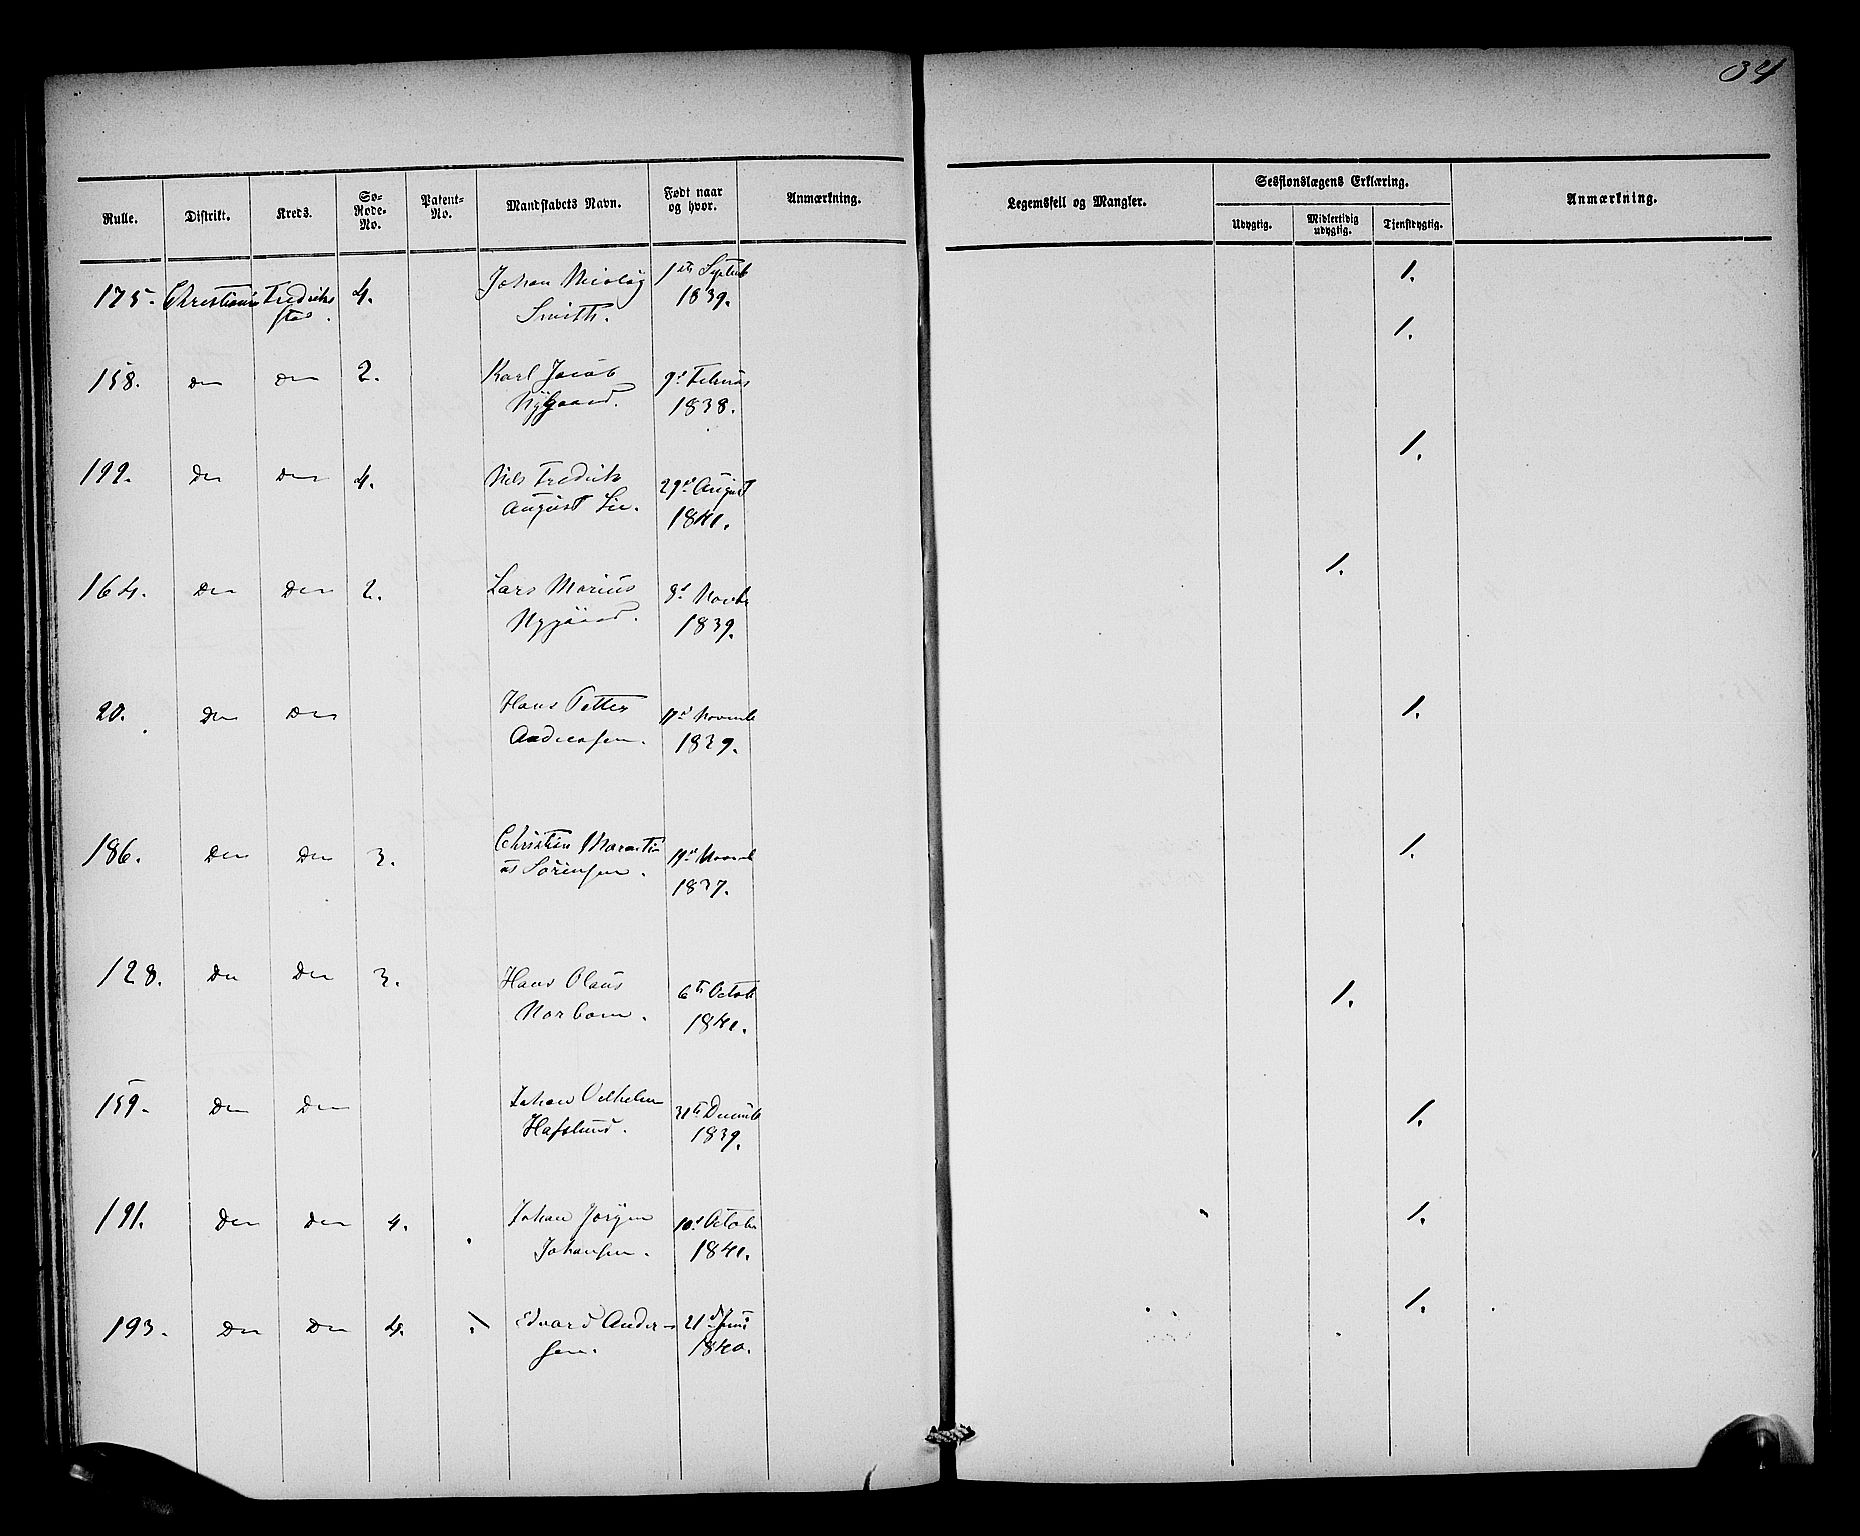 34
Rulle. Distrikt. Kreds. Sø-Rode-No. Patent-No. Mandskabets Navn. Født naar og hvor. Anmærkning. Legemsfeil og Mangler. Sessionslægens Erklæring. Anmærkning.
Udygtig. Midlertidig udygtig. Tjenstdygtig.
175. Christiania Fredriks 4. Johan Nicolay 1ste Septeb 1.
stad. Smith. 1839.
1.
158. do do 2. Karl Jacob 9de Februar
Nygaard. 1838.
1.
199. do do 4. Nils Fredrik 29de August
August Lie. 1841.
1.
164. do do 2. Lars Marius 8de Novbr
Nygaard. 1839.
20. do do Hans Petter 17de Novemb 1.
Andreasen. 1839.
186. do do 3. Christian 19de Novemb 1.
us Sørensen. 1837.
128. do do 3. Hans Olaus 6te Octob 1.
Norbom. 1841.
159. do do Johan Vilhelm 31te Decemb 1.
Hafslund. 1839.
191. do do 4. Johan Jørgen 10de Octobr 1.
Johansen. 1841.
193. do do 4. Edvard Ander- 21de Juni 1.
sen. 1840.